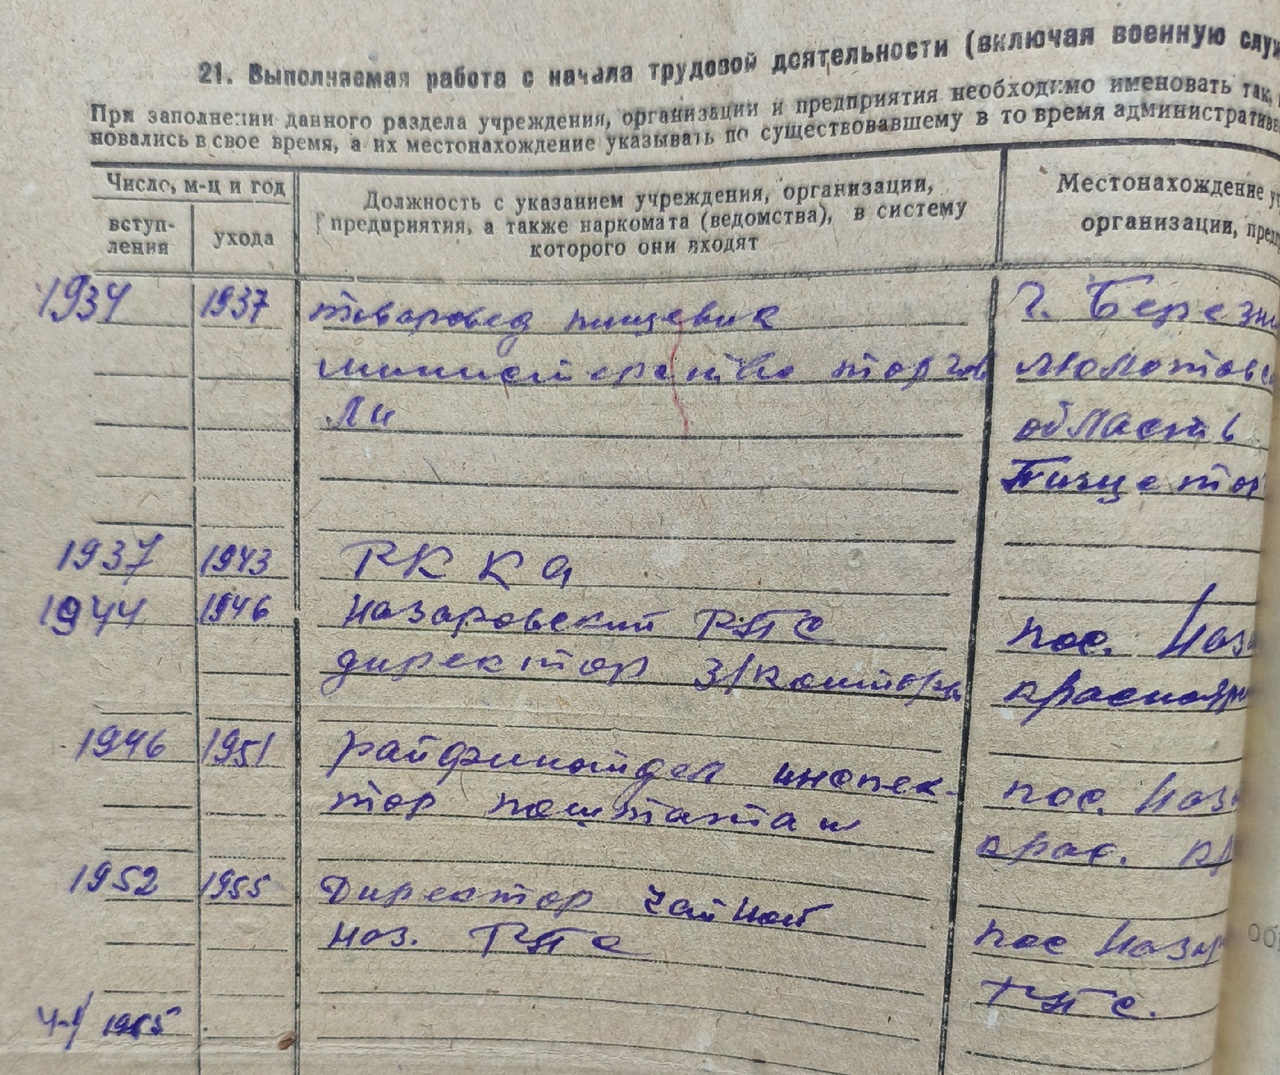 21. Выполняемая работа с начала трудовой деятельности (включая военную служ
При заполнении данного раздела учреждения, организации и предприятия необходимо именовать так,
новались в свое время, а их местонахождение указывать по существовавшему в то время административн
Число, м-ц и год
вступ-
ления
ухода
Должность с указанием учреждения, организации,
предприятия, а также наркомата (ведомства), в систему
которого они входят
Местонахождение уч
организации, пред
1934 1937 товаровед пищевик г. Березни
министерство торгов Молотовс
ли область
Пищетор
1937 1943 РККА
1944 1946 Назаровский РПС пос. Наза
директор з/конторы Краснояр
1946 1951 райфинотдел инспек- пос. Наз
тор Крас. кр
1952 1955 Директор чайной
Наз. РПС пос Назар
РПС.
1955
об